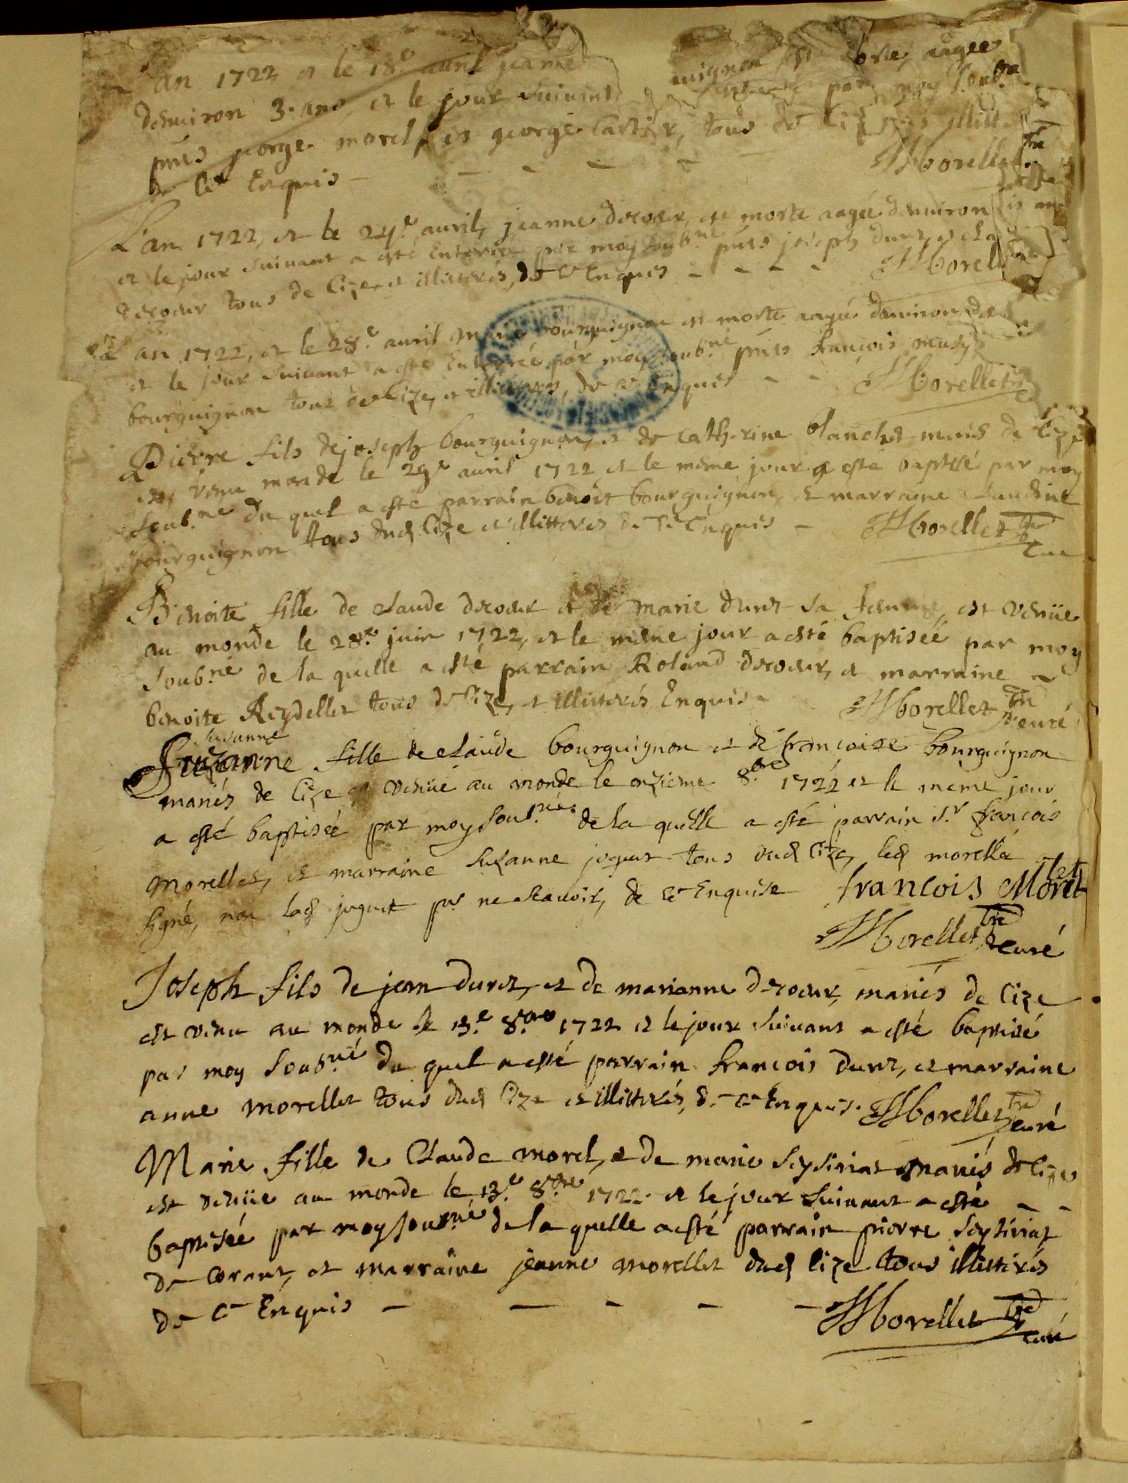 an 1722 et le 18e avril jeanne uignon est morte aagée
denviron 3 ans et le jour suivant par moy soub.né
pnts george morel, et george tous de illitt
de ce Enquis
Morellet pre
L'an 1722, et le 24e avril, jeanne decoeur, est morte aagée denviron
et le jour suivant a esté Enterrée par moy soub.né pnts joseph durez, et
decoeur tous de Cize et illitterés, de ce Enquis - - - - Morellet
L'an 1722, et le 28e avril bourguignon est morte aagée denviron
et le jour suivant a esté Enterrée par moy soub.né pnts françois
bourguignon tous de Cize, et illitterés, de ce Enquis - - Morellet
Pierre fils de joseph bourguignon, et de catherine blanchet mariés de Cize
est venu monde le 29e avril 1722 et le meme jour a esté baptisé par moy
soub.né du quel a esté parrain benoit bourguignon, et marraine claudine
bourguignon tous dud Cize et illitterés de ce Enquis - Morellet pre
curé
Benoite fille de claude decoeur et de marie durez sa femme, est venüe
au monde le 28e juin 1722, et le même jour a esté baptisée par moy
soub.né de la quelle a esté parrain Roland decoeur, et marraine
benoite Reydellet tous de Cize, et illitterés Enquis Morellet pre
curé
susanne
fille de claude bourguignon et de françoise bourguignon
mariés de Cize est venüe au monde le onzieme 8bre 1722 et le meme jour
a esté baptisée par moy soub.né de la quelle a esté parrain sr françois
Morellet, et marraine suzanne joguet tous dud Cize, led morellet
signé, non lad joguet pr ne scavoir, de ce Enquise francois Morellet
Morellet pre
curé
Joseph fils de jean durez, et de marianne decoeur, mariés de Cize
est venu au monde le 13e 8bre 1722 et le jour suivant a esté baptisé
par moy soub.né du quel a esté parrain françois durez, et marraine
anne morellet tous dud Cize et illitterés, de ce Enquis. Morellet pre
curé
Marie fille de Claude morel, et de marie seysiriat mariés de Cize
est venüe au monde le 13e 8bre 1722 et le jour suivant a esté - -
baptisée par moy soub.né de la quelle a esté parrain pierre seysiriat
de corant, et marraine jeanne morellet dud Cize tous illitterés
de ce Enquis - - - - - Morellet pre
curé